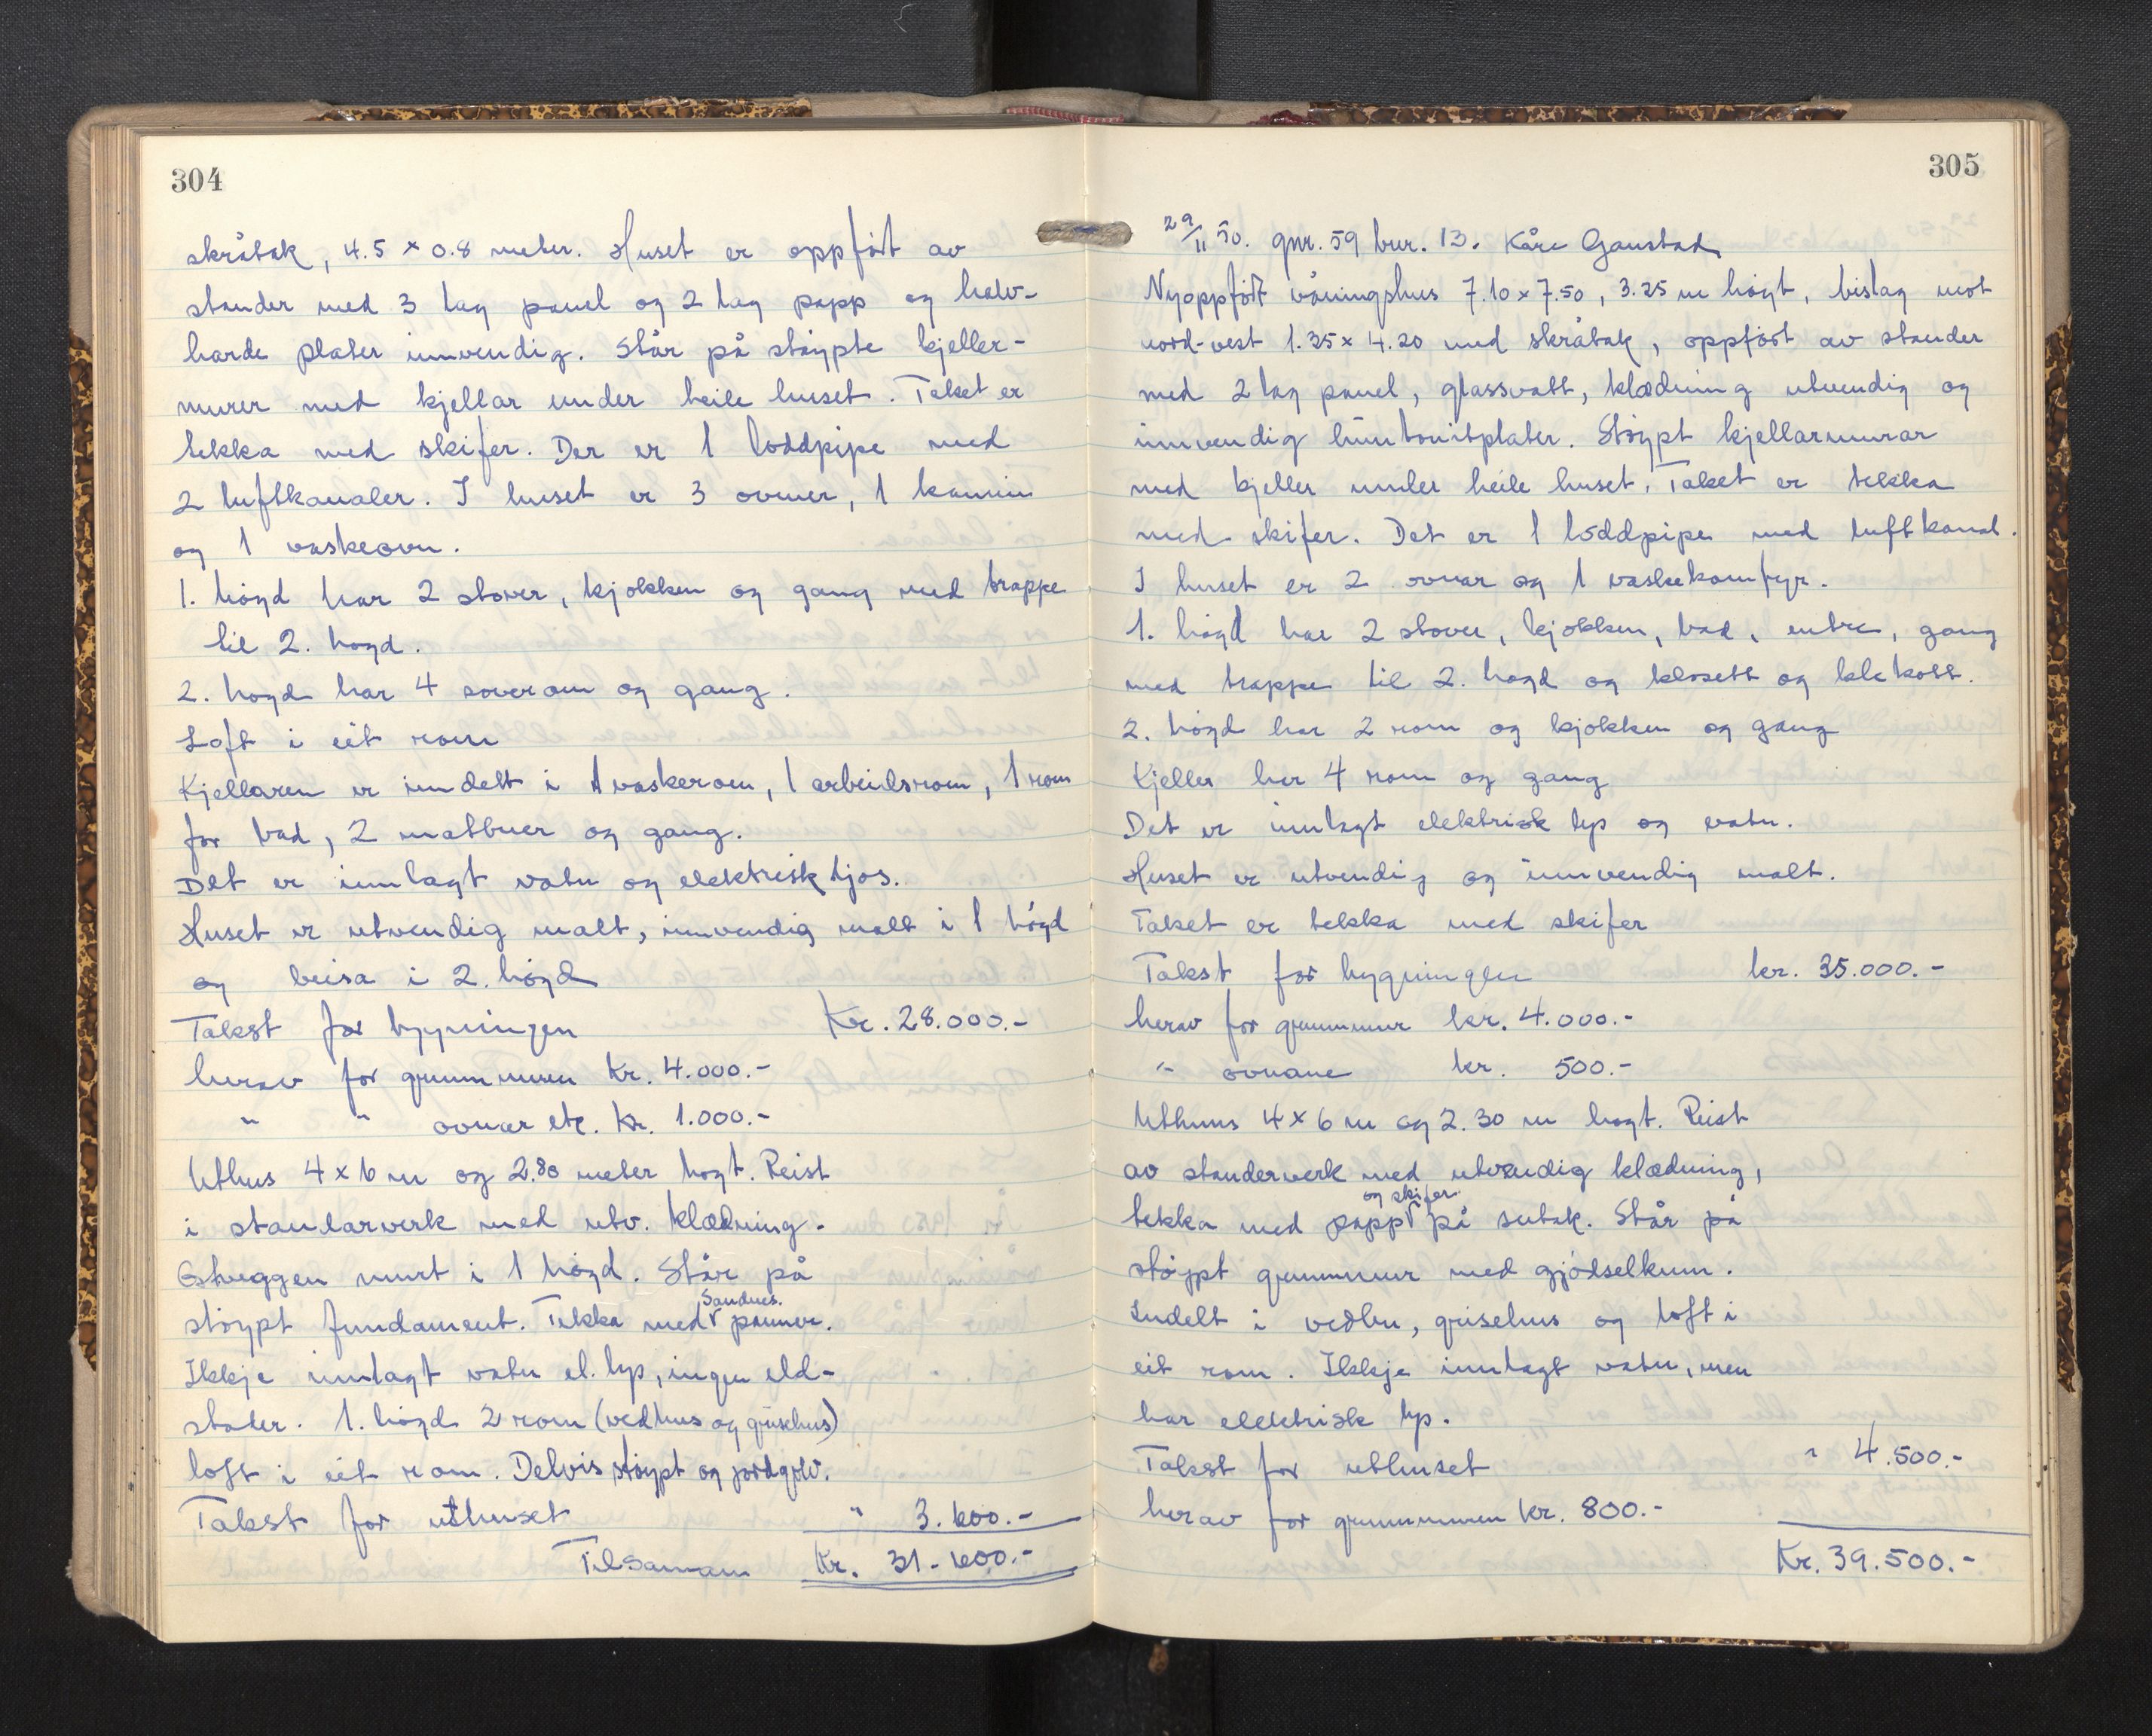 304
skråtak, 4.5 × 0.8 meter. Huset er oppført av
stender med 3 lag panel og 2 lag papp og halv-
harde plater innvendig. Står på støypte kjeller-
murer med kjellar under heile huset. Taket er
tekka med skifer. Der er 1 loddpipe med
2 luftkanaler. I huset er 3 ovner, 1 kamin
og 1 vaskeovn.
1. høgd har 2 stover, kjøkken og gang med trappe
til 2. høgd.
2. høgd har 4 soverom og gang.
Loft i eit rom
Kjellaren er inndelt i 1 vaskerom, 1 arbeidsrom, 1 rom
for bad, 2 matbuer og gang.
Det er innlagt vatn og elektrisk ljos.
Huset er utvendig malt, innvendig malt i 1 høgd
og beisa i 2. høgd
Takst for bygningen Kr. 28.000.-
herav for grunnmuren Kr. 4.000.-
" " ovnar etc. Kr. 1.000.-
Uthus 4 × 6 m og 2.80 meter høgt. Reist
i standarverk med utv. klædning.
Østveggen murt i 1 høgd. Står på
støypt fundament. Tekka med Sandnes. panner.
Ikkje innlagt vatn el. lys, ingen eld-
stader. 1. høgd 2 rom (vedhus og grisehus)
loft i eit rom. Delvis støypt og jordgolv.
Takst for uthuset " 3.600.-
Tilsamam Kr. 31.600.-
305
29/11 50. gnr. 59 bnr. 13. Kåre Ganstad
Nyoppført våningshus 7.10 × 7.50, 3.25 m høgt, bislag mot
nord-vest 1.35 × 4.20 med skråtak, oppført av stender
med 2 lag panel, glassvatt, klædning utvendig og
innvendig huntonitplater. Støypt kjellarmurar
med kjeller under heile huset. Taket er tekka
med skifer. Det er 1 loddpipe med luftkanal.
I huset er 2 ovnar og 1 vaskekomfyr.
1. høgd har 2 stover, kjøkken, bad, entre, gang
med trappe til 2. høgd og klosett og klekott.
2. høgd har 2 rom og kjøkken og gang
Kjeller har 4 rom og gang
Det er innlagt elektrisk lys og vatn.
Huset er utvendig og innvendig malt.
Taket er tekka med skifer
Takst for bygningen kr. 35.000.-
herav for grunnmur kr. 4.000.-
" ovnane kr. 500.-
Uthus 4 × 6 m og 2.30 m høgt. Reist
av standerverk med utvendig klædning,
tekka med papp og skifer. på sutak. Står på
støypt grunnmur med gjødselkum.
Indelt i vedbu, grisehus og loft i
eit rom. Ikkje innlagt vatn, men
har elektrisk lys.
Takst for uthuset " 4.500.-
herav for grunnmuren kr. 800.-
Kr. 39.500.-